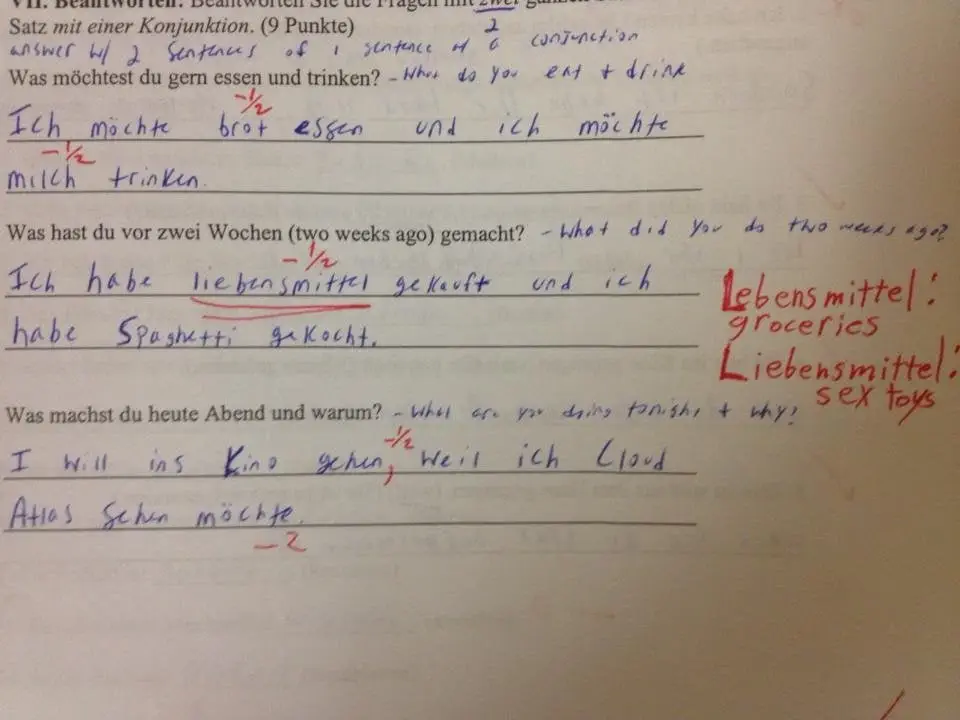 VII. Beantworten. Beantworten Sie die Fragen mit zwei
Satz mit einer Konjunktion. (9 Punkte)
2
answer w/ 2 sentences of 1 sentence w/ a conjunction
Was möchtest du gern essen und trinken? - What do you eat + drink
-1/2
Ich möchte brot essen und ich möchte
-1/2
milch trinken.
Was hast du vor zwei Wochen (two weeks ago) gemacht? - What did you do two weeks ago?
-1/2
Ich habe liebensmittel gekauft und ich
habe Spaghetti gekocht.
Lebensmittel:
groceries
Liebensmittel:
sex toys
Was machst du heute Abend und warum? - What are you doing tonight + why?
-1/2
I will ins Kino gehen, weil ich Cloud
Atlas sehen möchte.
-2